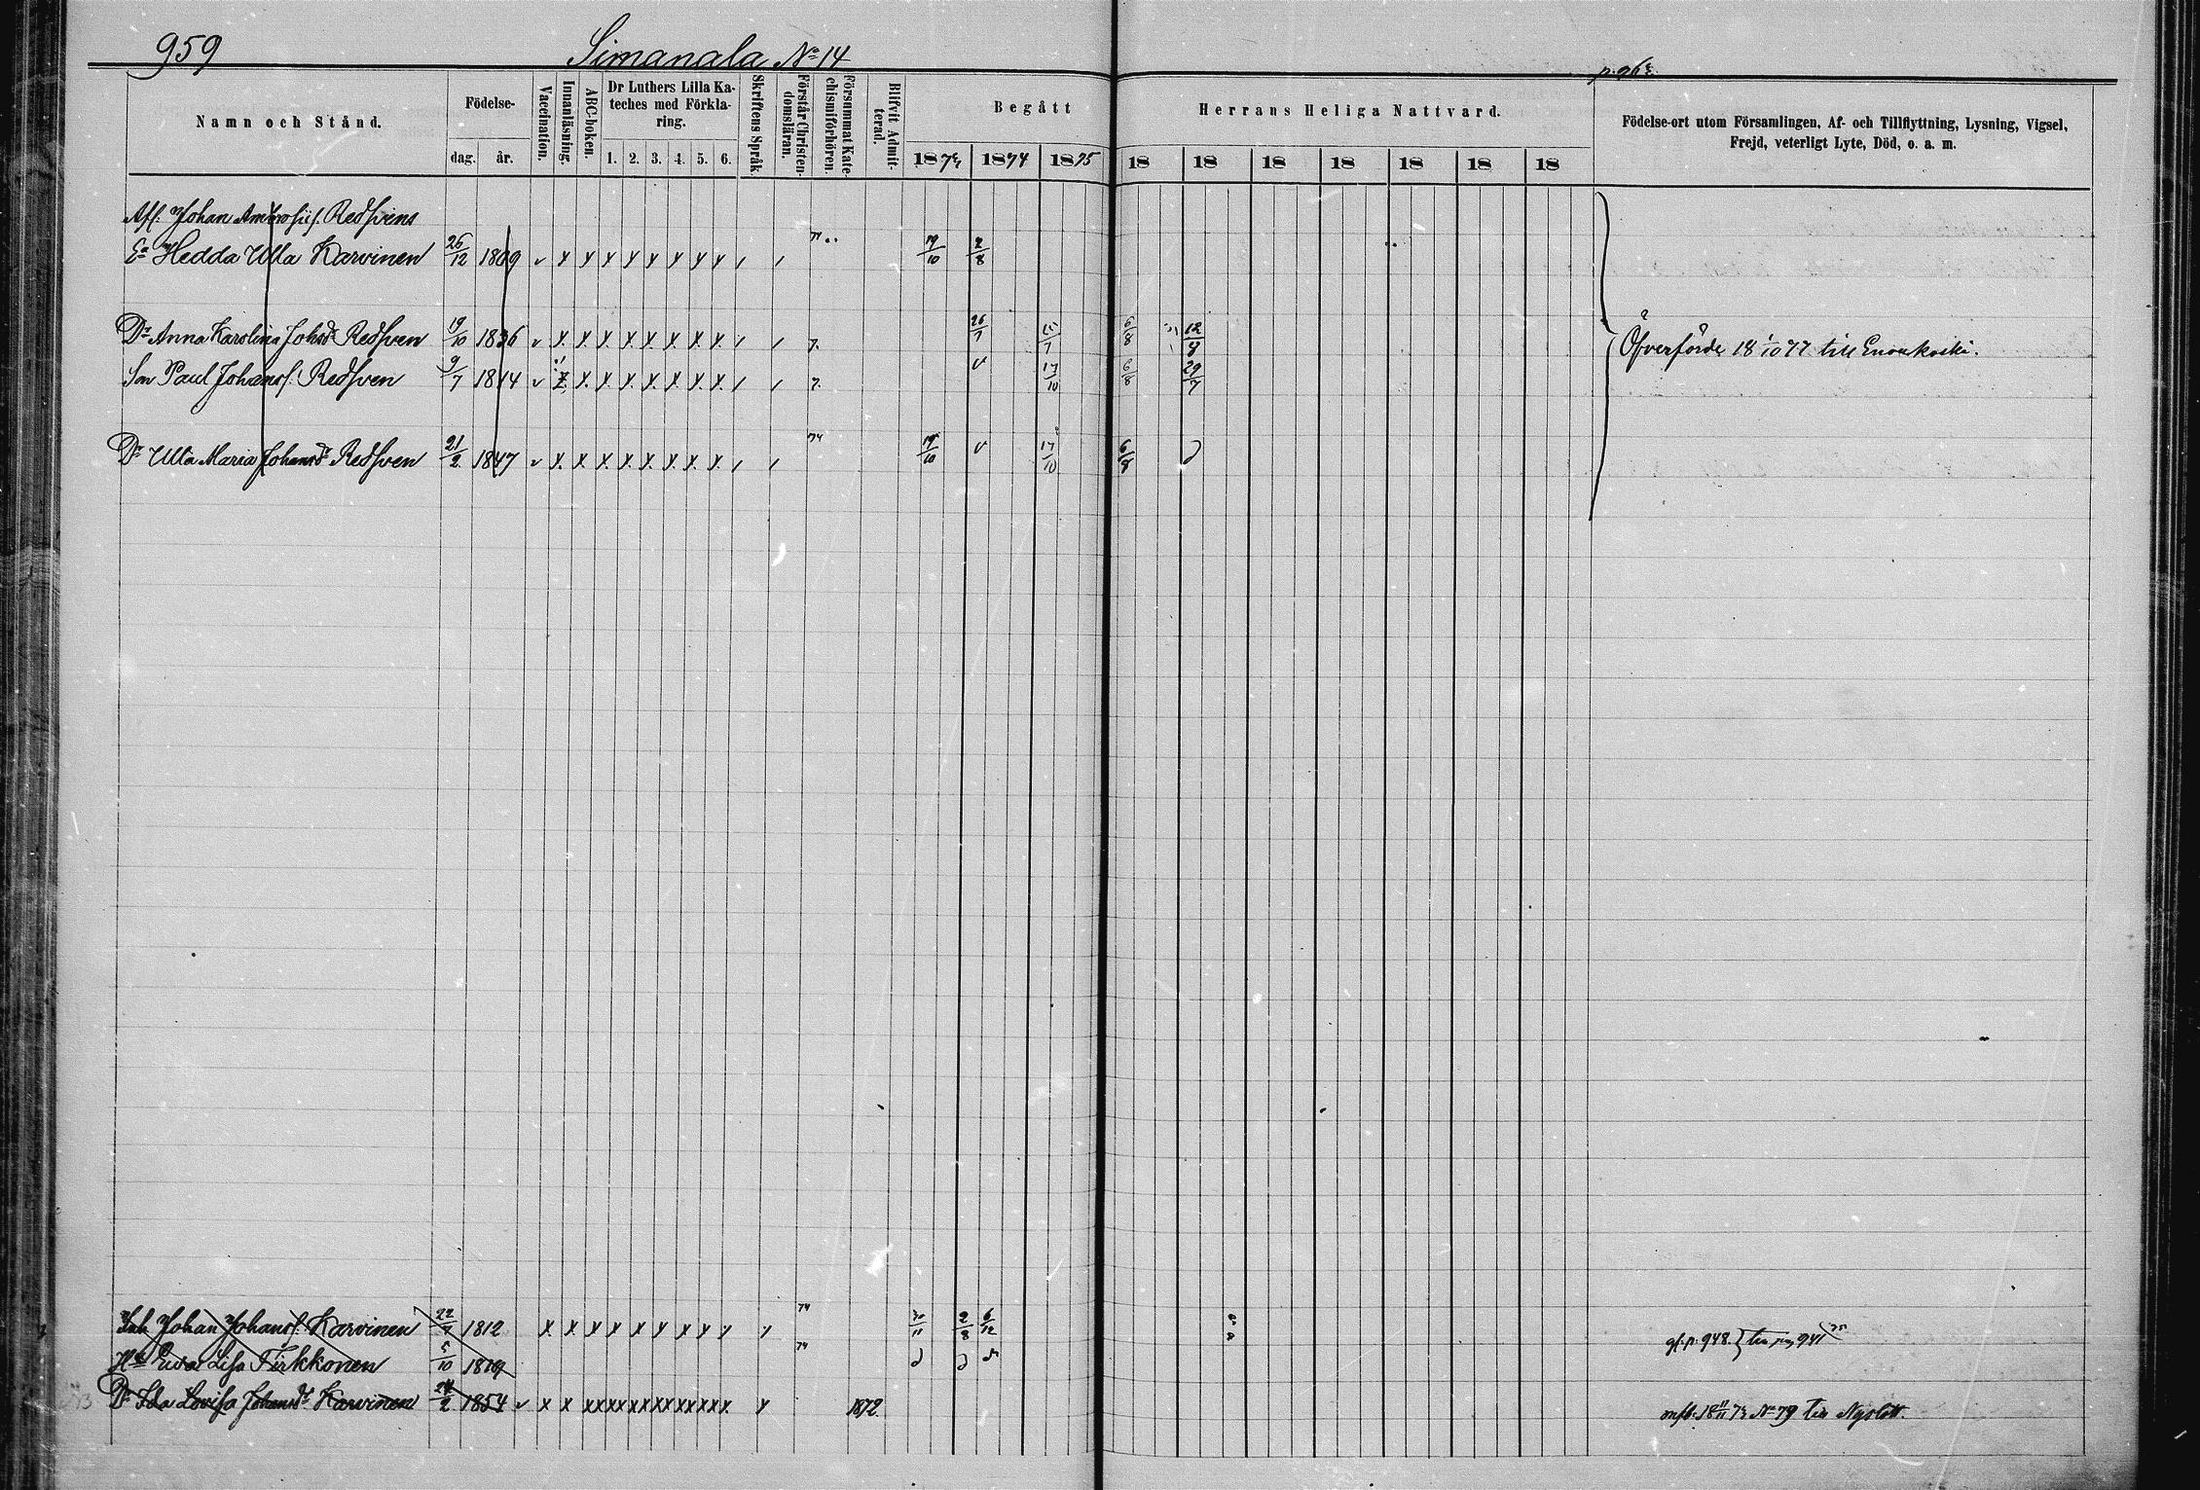 959 Simanala No 14
Namn och Stånd. Födelse- dag. år. Vaccination. Innanläsning. ABC-boken. Dr Luthers Lilla Kateches med Förklaring. 1. 2. 3. 4. 5. 6. Skriftens Språk. Förstår Christendomsläran. Försummat Katechismiförhören. Blifvit Admitterad. Begått Herrans Heliga Nattvard. 1873 1874 1875 18 18 18 18 18 18 18 Födelse-ort utom Församlingen, Af- och Tillflyttning, Lysning, Vigsel, Frejd, veterligt Lyte, Död, o. a. m.
Afl. Johan Ambrosiif. Redsvens
Ea Hedda Ulla Karvinen 26/12 1809 v x x x x x x x x 19/10 2/8
Dr Anna Karolina Johsdr Redsven 19/10 1836 v x x x x x x x x 26/7 6/8 12/8 Öfverförde 18 1/10 77 till Enonkoski.
Son Paul Johansf. Redsven 9/7 1844 v x x x x x x x v 17/10 6/8 29/7
Dr Ulla Maria Johansdr Redsven 21/2 1847 v x x x x x x x x 74 19/10 v 17/10 6/8
Johan Johansf. Karvinen 22/7 1812 x x x x x x x x x 74 2/8 6/12 p. 948. 941
Hu Eva Lisa Tirkkonen 5/10 1819 74
Dr Ida Lovisa Johansdr Karvinen 24/2 1854 v x x xxxxxxxxxxxx x 1872. No 79 till Nyslott.